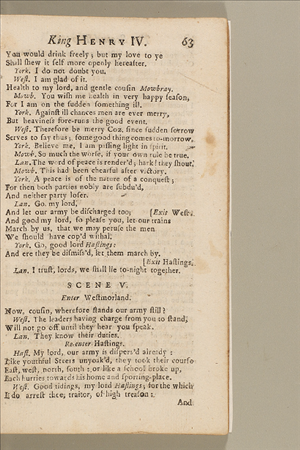 King HENRY IV. 63
You would drink freely; but my love to ye
Shall shew it self more openly hereafter.
York. I do not doubt you.
West. I am glad of it.
Health to my lord, and gentle cousin Mowbray.
Mowb. You wish me health in very happy season,
For I am on the sudden something ill.
York. Against ill chances men are ever merry,
But heaviness fore-runs the good event.
West. Therefore be merry Coz, since sudden sorrow
Serves to say thus; some good thing comes to-morrow.
York. Believe me, I am passing light in spirit.
Mowb. So much the worse, if your own rule be true.
Lan. The word of peace is render'd; hark! they shout.
Mowb. This had been chearful after victory.
York. A peace is of the nature of a conquest;
For then both parties nobly are subdu'd,
And neither party loser.
Lan. Go, my lord,
And let our army be discharged too; [Exit West.
And good my lord, so please you, let our trains
March by us, that we may peruse the men
We should have cop'd withal.
York. Go, good lord Hastings:
And ere they be dismiss'd, let them march by.
[Exit Hastings.
Lan. I trust, lords, we shall lie to-night together.
SCENE V.
Enter Westmorland.
Now, cousin, wherefore stands our army still?
West. The leaders having charge from you to stand,
Will not go off until they hear you speak.
Lan. They know their duties.
Re-enter Hastings.
Hast. My lord, our army is dispers'd already;
Like youthful Steers unyoak'd, they took their course
East, west, north, south; or like a school broke up,
Each hurries towards his home and sporting-place.
West. Good tidings, my lord Hastings; for the which
I do arrest thee, traitor, of high treason:
And